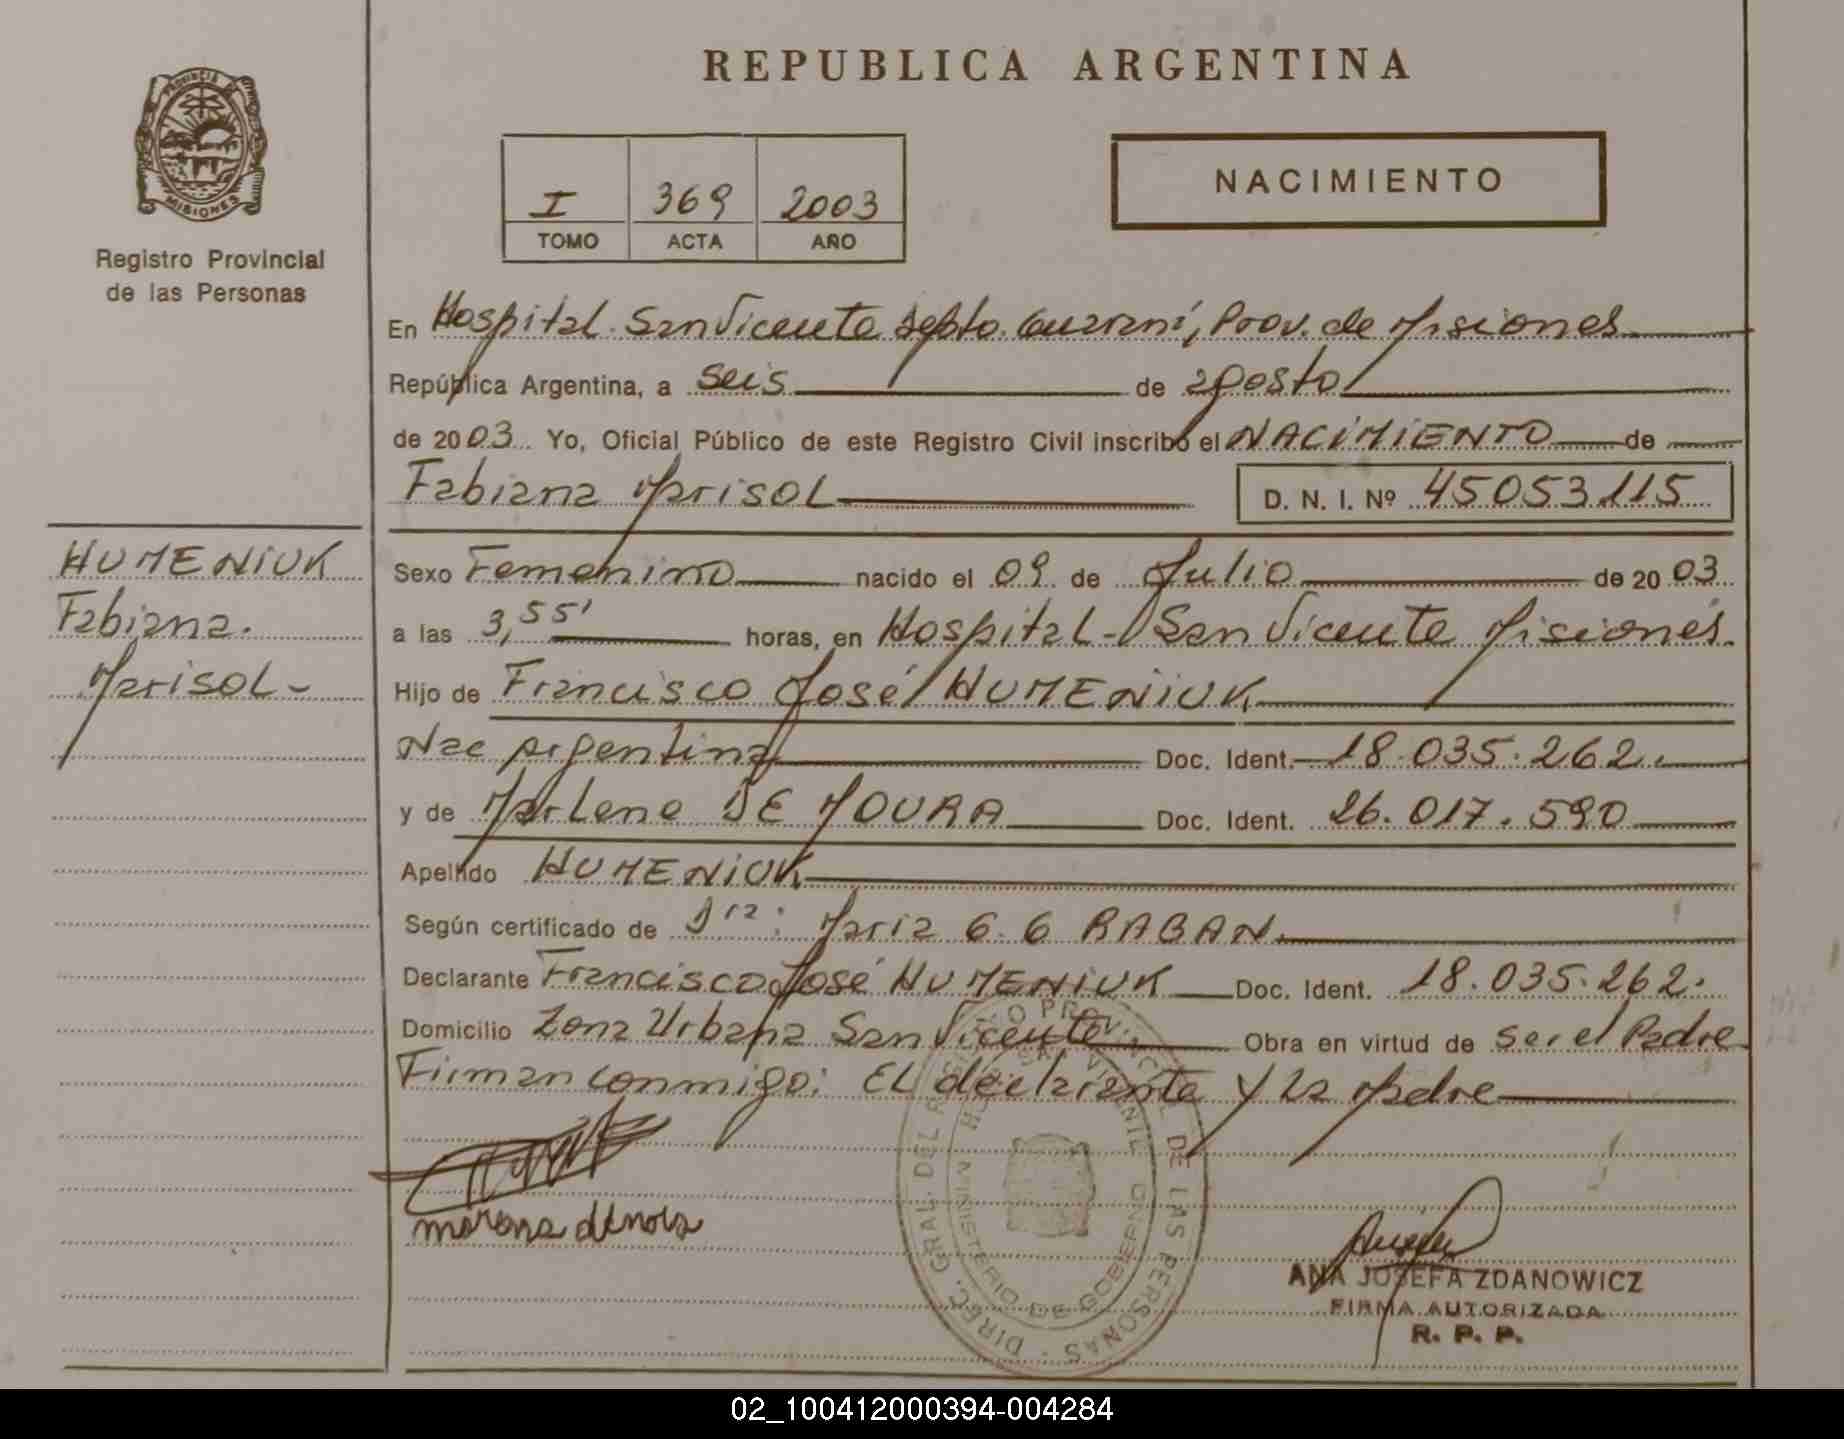 REPUBLICA ARGENTINA
PROVINCIA DE
MISIONES
Registro Provincial
de las Personas
I 369 2003
TOMO ACTA AÑO
NACIMIENTO
En Hospital San Vicente depto. Guarani, Prov. de Misiones
República Argentina, a seis de agosto
de 2003 Yo, Oficial Público de este Registro Civil inscribo el NACIMIENTO de
Fabiana Marisol D. N. I. Nº 45053115
HUMENIUK
Fabiana.
Marisol-
Sexo Femenino nacido el 09 de Julio de 2003
a las 3,55' horas, en Hospital - San Vicente Misiones.
Hijo de Francisco José HUMENIUK
Nac Argentina Doc. Ident. 18.035.262.
y de Marlene DE MOURA Doc. Ident. 26.017.590
Apellido HUMENIUK
Según certificado de Dra: Maria G. G RABAN.
Declarante Francisco José HUMENIUK Doc. Ident. 18.035.262.
Domicilio Zona Urbana San Vicente. Obra en virtud de ser el Padre
Firman conmigo: El declarante y la Madre
DIREC. GRAL. DEL REGISTRO PROVINCIAL DE LAS PERSONAS
MINISTERIO DE GOBIERNO
ANA JOSEFA ZDANOWICZ
FIRMA AUTORIZADA
R. P. P.
02_100412000394-004284